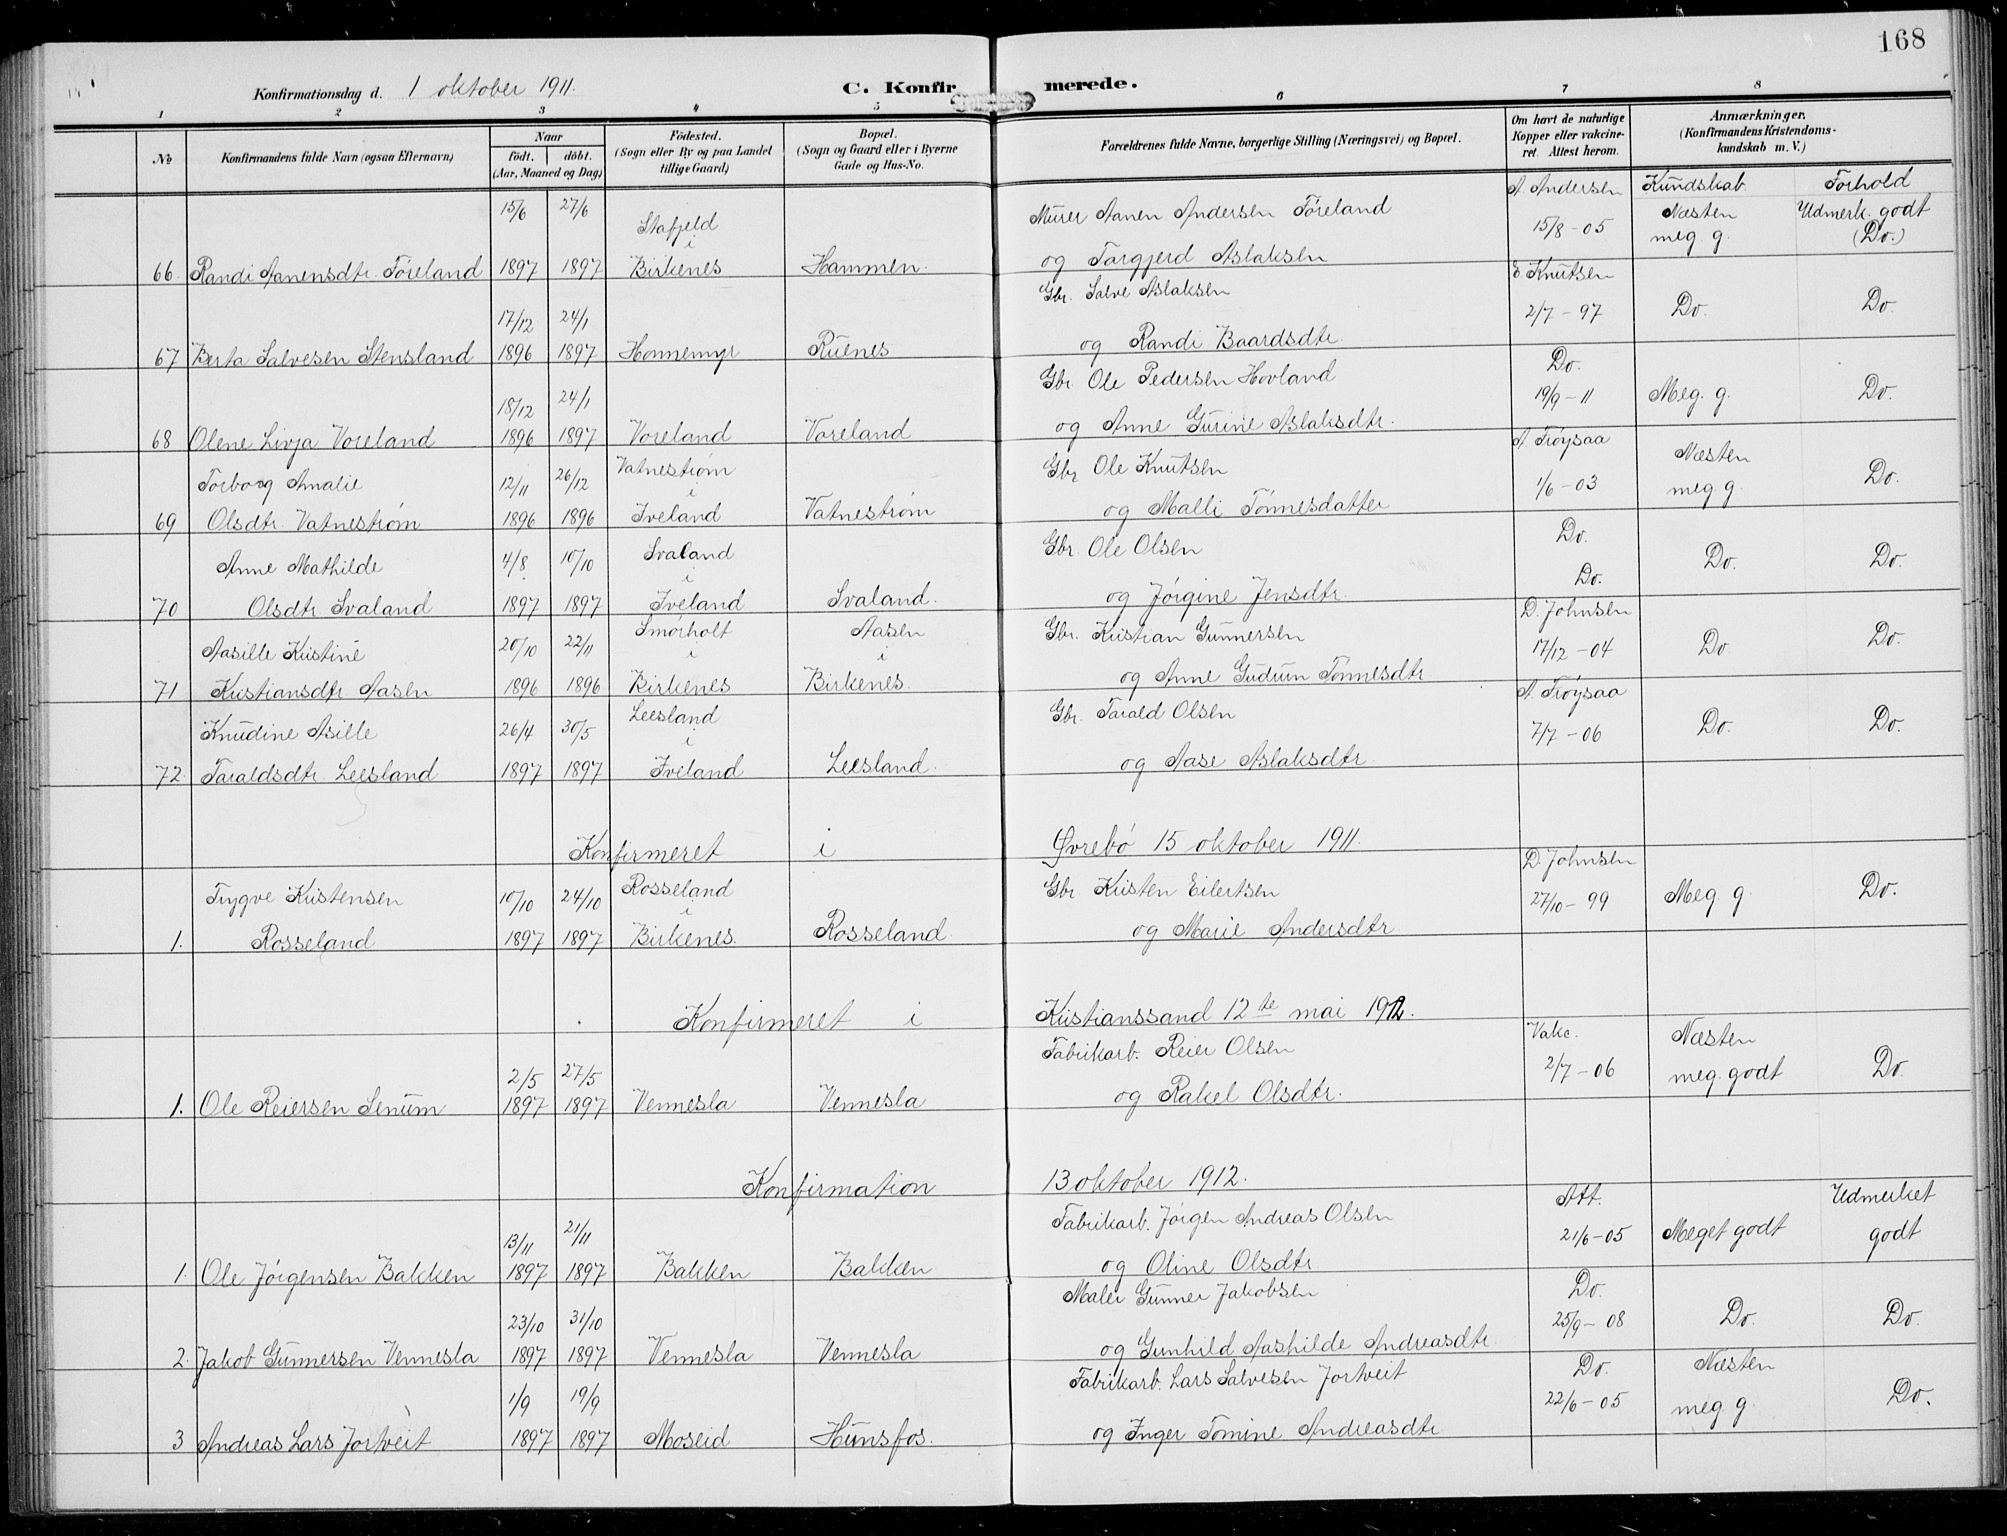 168
Konfirmationsdag d. 1 oktober 1911.
C. Konfirmerede.
1 2 3 4 5 6 7 8
No Konfirmandens fulde Navn (ogsaa Efternavn) Naar födt. döbt. (Aar, Maaned og Dag) Födested. (Sogn eller By og paa Landet tillige Gaard) Bopæl. (Sogn og Gaard eller i Byerne Gade og Hus-No. Forældrenes fulde Navne, borgerlige Stilling (Næringsvei) og Bopæl. Om havt de naturlige Kopper eller vakcineret. Attest herom. Anmærkninger. (Konfirmandens Kristendomskundskab m. V.)
A. Andersen Kundskab Forhold
15/6 27/6 Stafjeld i Murer Aanen Andersen Föreland 15/8-05 Næsten meg. g. Udmerk. godt (Do.)
66. Randi Aanensdtr. Föreland 1897 1897 Birkenes Hammen. og Torgjerd Aslaksen
17/12 24/1 Gbr. Salve Aslaksen E. Knutsen 2/7-97 Do. Do.
67 Berta Salvesen Stensland 1896 1897 Honnemyr Ruenes og Randi Baardsdtr.
18/12 24/1 Gbr. Ole Pedersen Hovland Do. 19/9-11 Meg. g. Do.
68 Olene Livja Voreland 1896 1897 Voreland Voreland og Anne Gurine Aslaksdtr.
Torborg Amalie 12/11 26/12 Vatnestrøm i Gbr Ole Knutsen A. Tröysaa 1/6-03 Næsten meg g. Do.
69 Olsdtr. Vatnestrøm 1896 1896 Iveland Vatnestrøm og Malli Tönnesdatter
Anne Mathilde 4/8 10/10 Svaland i Gbr. Ole Olsen Do. Do. Do. Do.
70 Olsdtr. Svaland 1897 1897 Iveland Svaland. og Jørgine Jensdtr.
Aasille Kristine 20/10 22/11 Smørholt i Aasen i Gbr. Kristian Gunnersen D. Johnsen 17/12-04 Do. Do.
71 Kristiansdtr Aasen 1896 1896 Birkenes Birkenes. og Anne Gudrun Tönnesdtr
Knudine Asille 26/4 30/5 Leesland i Gbr. Tarald Olsen A. Tröysaa 7/7-06 Do. Do.
72. Taraldsdtr. Leesland 1897 1897 Iveland Leesland. og Aase Aslaksdtr.
Konfirmeret i Øvrebö 15 oktober 1911.
Trygve Kristensen 10/10 24/10 Rosseland i Gbr. Kristen Eilertsen D. Johnsen 27/10-99 Meg. g. Do.
1. Rosseland 1897 1897 Birkenes. Rosseland. og Marie Andersdtr.
Konfirmeret i Kristianssand 12te mai 1912.
2/5 27/5 Fabrikarb. Reier Olsen Vakc. 2/7-06 Næsten meg. godt Do.
1. Ole Reiersen Senum 1897 1897 Vennesla Vennesla og Rakel Olsdtr.
Konfirmation 13 oktober 1912.
13/11 21/11 Fabrikarb. Jørgen Andreas Olsen Att. 21/6-05 Meget godt Udmerket godt
1. Ole Jørgensen Bakken 1897 1897 Bakken Bakken og Oline Olsdtr.
23/10 31/10 Maler Gunner Jakobsen Do. 25/9-08 Do. Do.
2. Jakob Gunnersen Vennesla 1897 1897 Vennesla Vennesla og Gunhild Aashilde Andreasdtr.
1/9 19/9 Fabrikarb. Lars Salvesen Jortveit Do. 22/6-05 Næsten meg. g. Do.
3 Andreas Lars Jortveit 1897 1897 Moseid Hunsfos. og Inger Tomine Andreasdtr